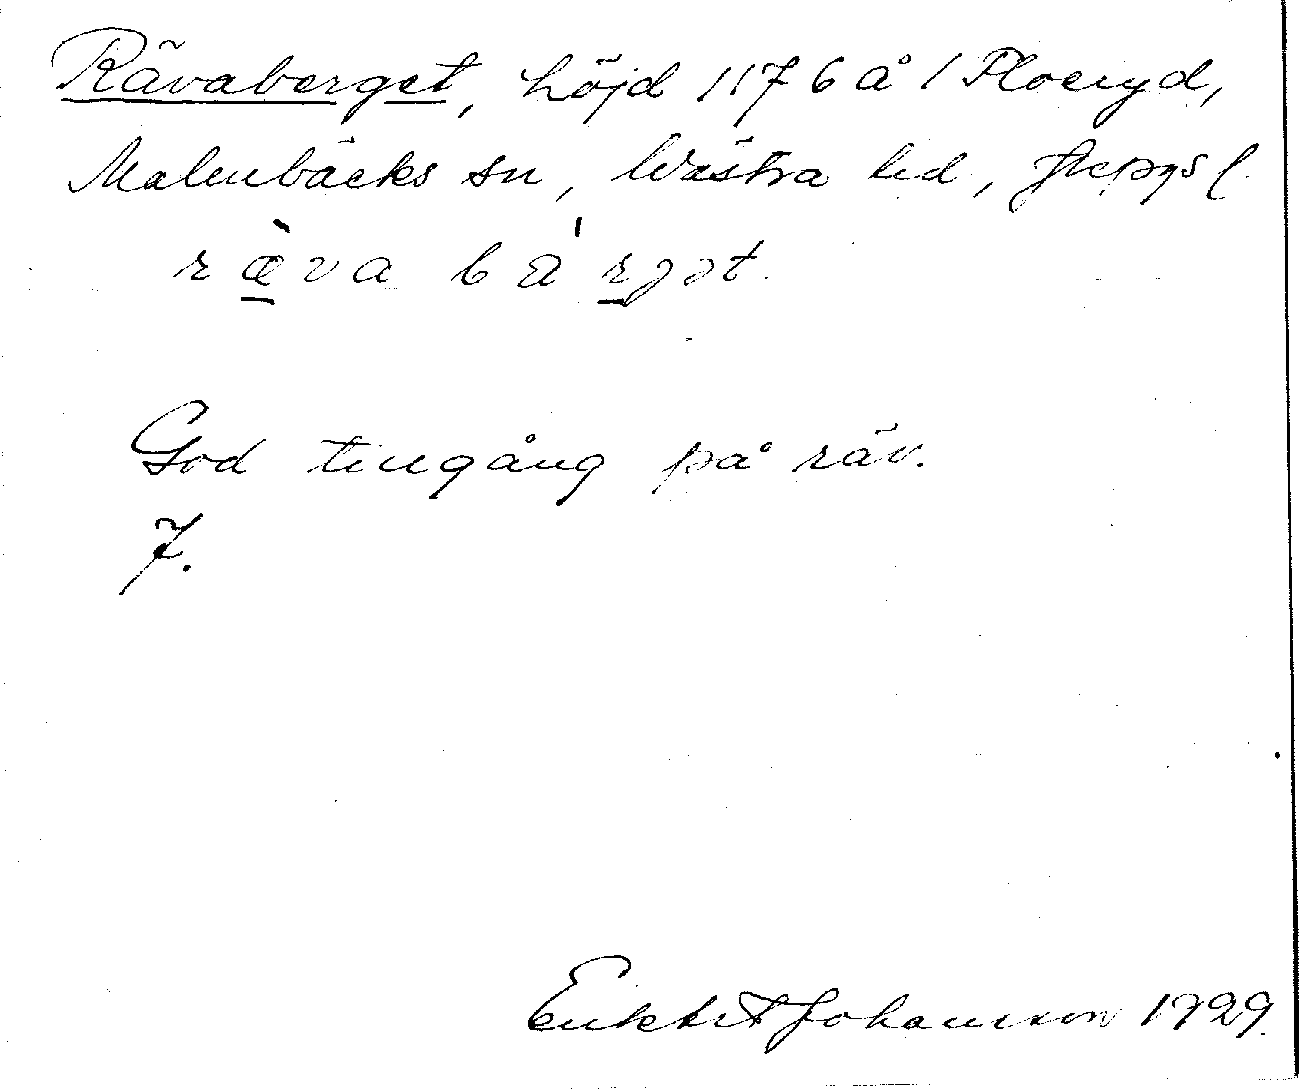 Rävaberget, höjd 1176 å 1 Floeryd,
Malmbäcks sn, Västra hd, Jkpgs l.
ræ̀va bá rgət.
God tillgång på räv.
7.
Johansson 1929.